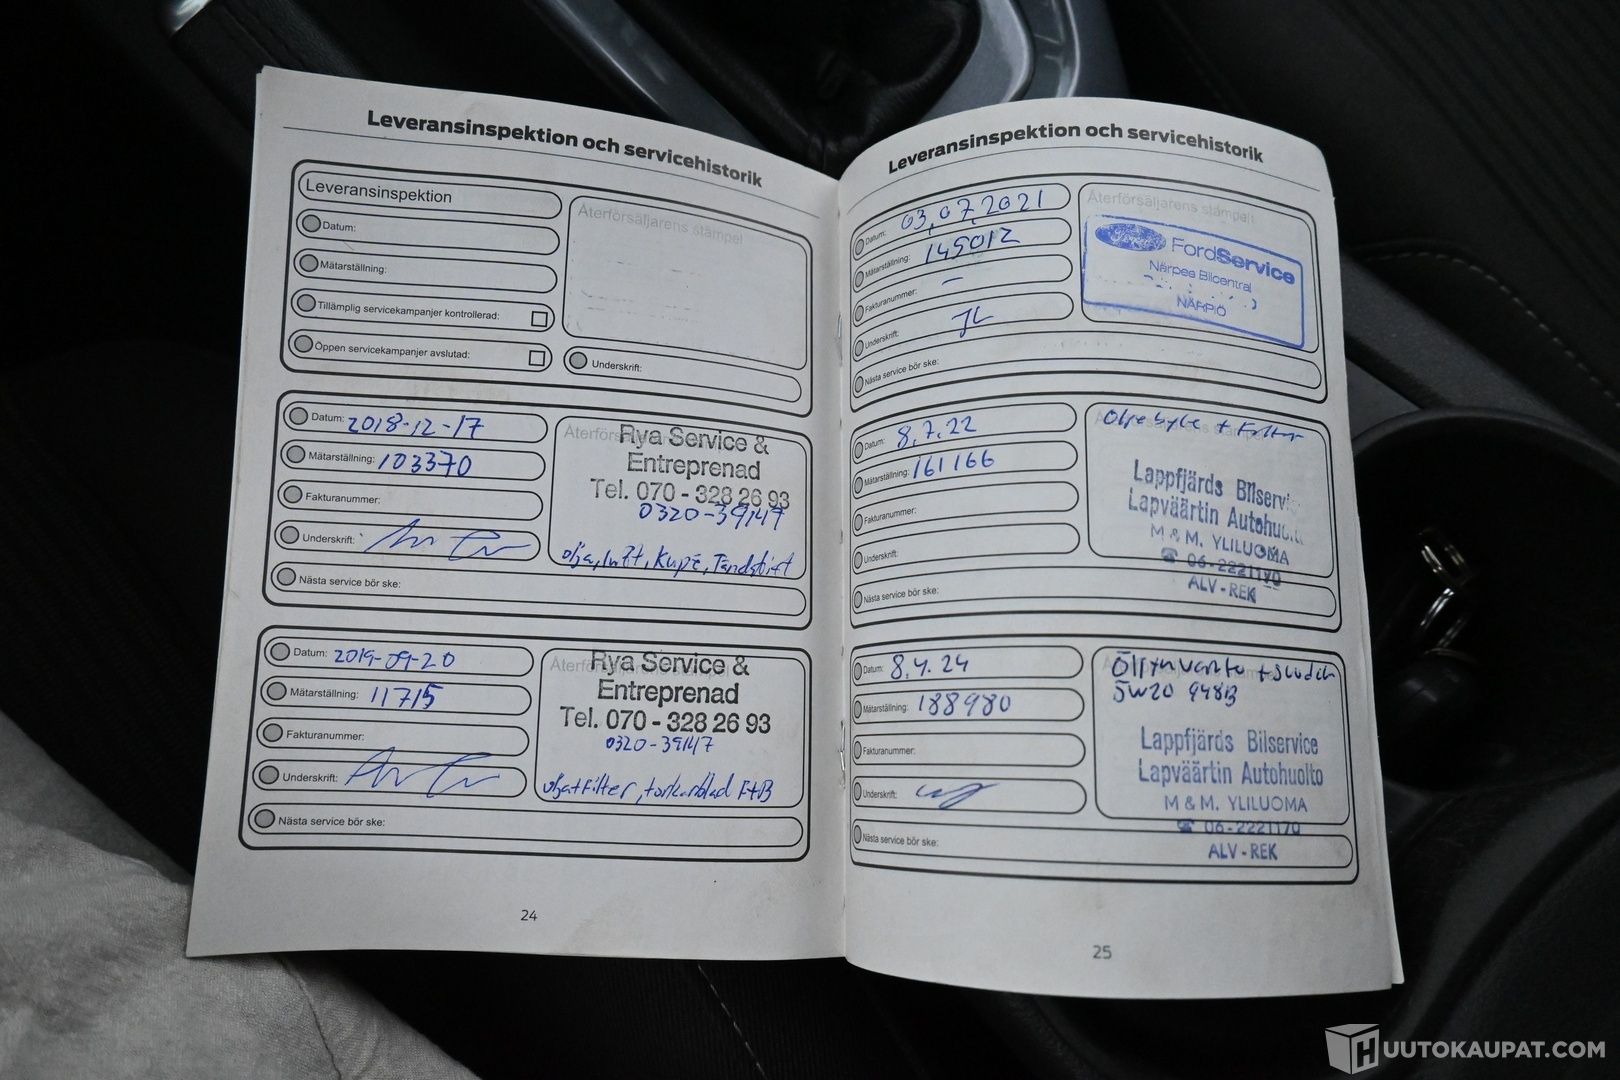 Leveransinspektion och servicehistorik
Leveransinspektion
Datum:
Mätarställning:
Tillämplig servicekampanjer kontrollerad:
Öppen servicekampanjer avslutad:
Återförsäljarens stämpel
Underskrift:
Datum: 2018-12-17
Mätarställning: 103370
Fakturanummer:
Underskrift:
Nästa service bör ske:
Rya Service &
Entreprenad
Tel. 070 - 328 26 93
0320-39147
olja, luft, Kupé, Tändstift
Datum: 2019-09-20
Mätarställning: 11715
Fakturanummer:
Underskrift:
Nästa service bör ske:
Rya Service &
Entreprenad
Tel. 070 - 328 26 93
0320-39147
olja+Filter, torkarblad F+B
24
Leveransinspektion och servicehistorik
Datum: 03,07,2021
Mätarställning: 145012
Fakturanummer: -
Underskrift:
Nästa service bör ske:
Återförsäljarens stämpel
Ford
FordService
Närpes Bilcentral
NÄRPIÖ
Datum: 8.7.22
Mätarställning: 161166
Fakturanummer:
Underskrift:
Nästa service bör ske:
Oljebyte + Filter
Lappfjärds Bilservi
Lapväärtin Autohuol
M & M. YLILUOMA
☎ 06-2221170
ALV-REK
Datum: 8.4.24
Mätarställning: 188980
Fakturanummer:
Underskrift:
Nästa service bör ske:
5W20 948B
Lappfjärds Bilservice
Lapväärtin Autohuolto
M & M. YLILUOMA
☎ 06-2221170
ALV-REK
25
HUUTOKAUPAT.COM